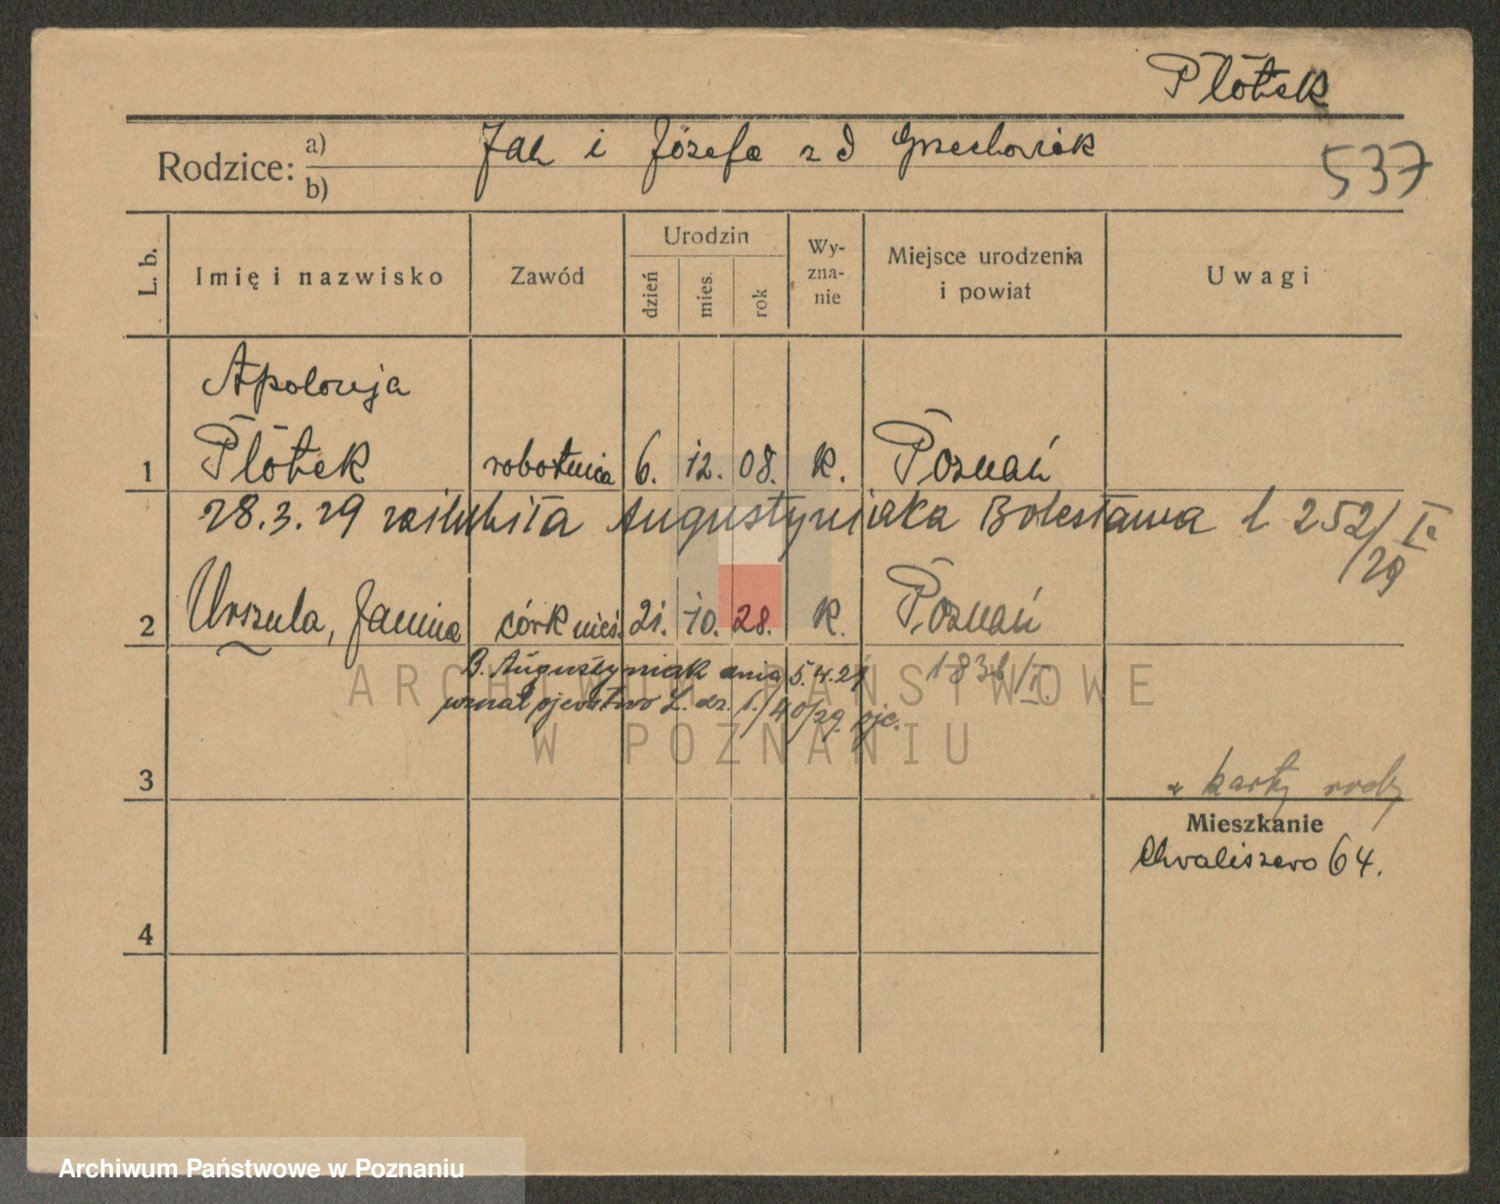 Płótek
Rodzice: a) Jan i Józefa z d Grzechowiak
b)
537
L. b. Imię i nazwisko Zawód Urodzin dzień mies. rok Wy-zna-nie Miejsce urodzenia i powiat Uwagi
Apolonja
1 Płótek robotnica 6. 12. 08. k. Poznań
28.3.29 zaślubiła Augustyniaka Bolesława l 252/I.
/29
2 Urszula, Janina córk nieś. 21. 10. 28. k. Poznań
B. Augustyniak dnia 5.4.29 1836/I.
uznał ojcostwo L. dz. 1./40/29 ojc.
ARCHIWUM PAŃSTWOWE
W POZNANIU
3 karty
Mieszkanie
Chwaliszewo 64.
4
Archiwum Państwowe w Poznaniu